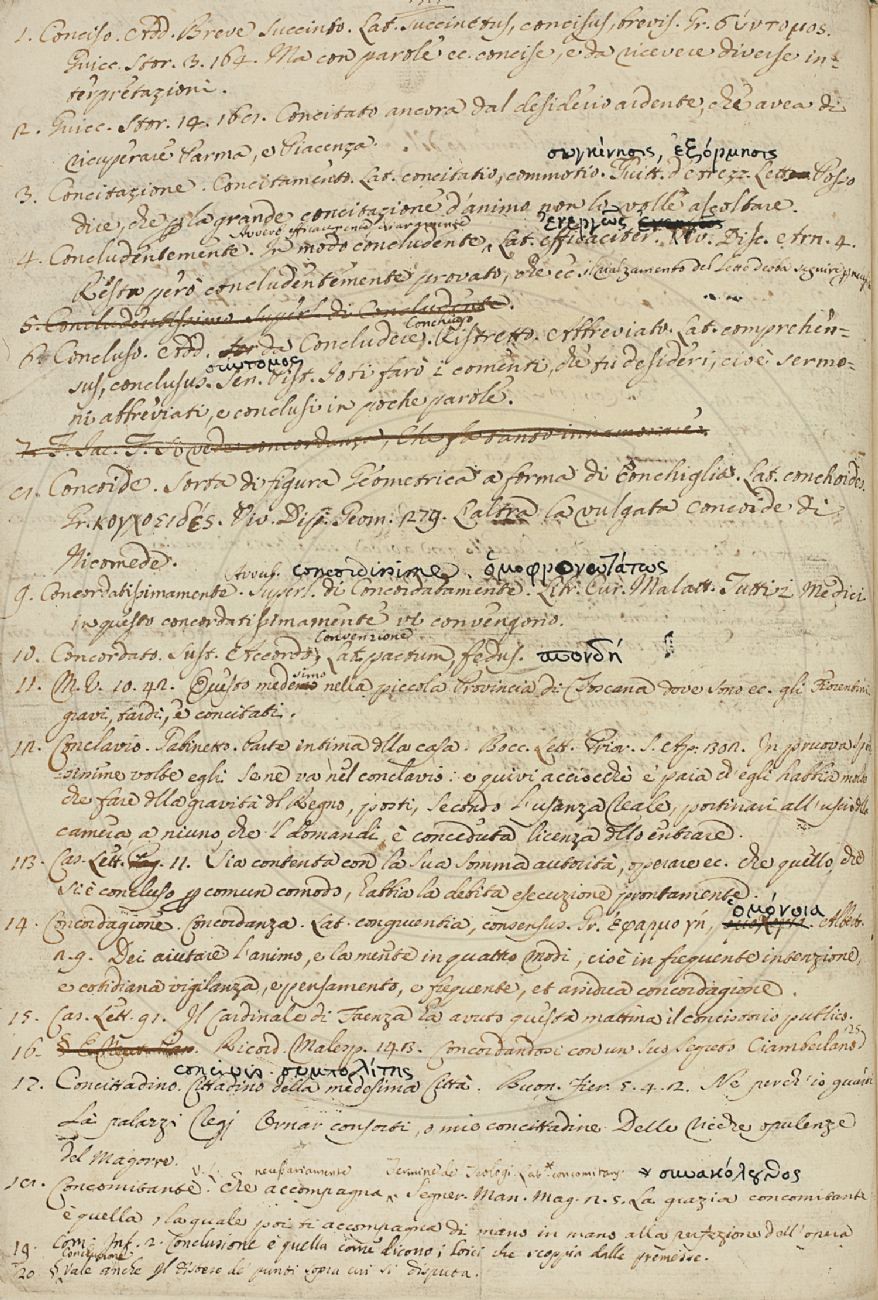 1. Conciso. Add. Breve Succinto. Lat. Succinctus, concisus, brevis. Gr. σύντομος.
Guicc. Stor. 3. 164. Ma con parole ec. concise, e da ricevere diverse in=
terpretazioni.
2. Guicc. Stor. 14. Concitato ancora dal desiderio ardente, che avea di
ricuperare Parma, e Piacenza.
συγκίνησις, ἐξόρμησις
3. Concitazione. Concitamento. Lat. concitatio, commotio. Guitt. d'Arezz. Lett. Poso
dire, che p la grande concitazione d'animo non lo volle ascoltare.
ἐνεργῶς
4. Concludentemente. In modo concludente, Lat. efficaciter. Viv. Disc. Arn. 4.
Resta però concludentemente provato, che ec
5. Concludentissimo Superl. di Concludente.
Conchiuso
6. Concluso. Add. da Concludere. Ristretto. Abbreviato. Lat. comprehen=
σύντομος
sus, conclusus. Sen. Pist. Io ti farò i comenti, che tu desideri, cioè sermo=
ni abbreviati, e conclusi in poche parole.
7. F. Jac. T.
8. Concoide. Sorta di figura Geometrica a forma di Conchiglia. Lat. conchoides.
Gr. κογχοειδές. Viv. Disp. Geom. 279. L'altra la vulgata concoide di
Nicomede.
Avverb. concordissime. ὁμοφρονεστάτως
9. Concordatissimamente. Superl. di Concordatamente. Libr. Cur. Malatt. Tutti i Medici
in questo concordatissimamente vi convengono.
Convenzione
10. Concordato. Sust. Accordo, Lat. pactum, fedus. σπονδή
11. M. V. 10. 42. Questo medesimo nella piccola Provincia di Toscana dove sono ec. gli Fiorentini
gravi, tardi, e concitati.
12. Conclavio. Gabinetto. Parte intima dlla casa. Bocc. Lett. Prior. S. Ap. 302. In pruova
ssime volte egli se ne va nel conclavio: e quivi acciocchè e' paia ch'egli habbia molto
che fare dlla gravità dl Regno, posti, secondo l'usanza Reale, portinari all'uscio dlla
camera a niuno che 'l domandi, è conceduta licenza dllo entrare.
13. Cas. Lett. 11. Sia contenta con la sua somma autorità, operare ec. che quello, che
si è concluso p comun comodo, habbia la debita esecuzione prontamente.
ὁμόνοια
14. Concordagione. Concordanza. Lat. congruentia, consensus. Gr. ἐφαρμογή, Albert.
2. 9. Dei aiutare l'animo, e la mente in quatto modi, cioè in frequente intenzione,
e cotidiana vigilanza, e pensamento, e frequente, et assidua concordagione.
15. Cas. Lett. 91. Il Cardinale di Faenza ha avuto questa mattina il concistorio publico.
16. Ricord. Malesp. 143. Concordandosi con un suo segreto Ciamberlano
concivis. συμπολίτης
17. Concittadino. Cittadino della medesima Città. Buon. Fier. 5. 4. 2. Nè perch' io guari
La palazzi Regj Ornar consorti, o mio concittadine Delle ricche opulenze
Del Magorre.
necessariamente Termine de' Teologi. Lat. concomitans. συνακόλουθος
18. Concomitante. Che accompagna. Segner. Man. Mag. 2. 5. La grazia concomitante
è quella, la quale poi ti accompagna di mano in mano alla perfezione dell'opera
19. Com. Inf. 2. Conclusione è quella come dicono i loici che scoppia dalle premesse.
Conclusione
20 § Vale anche Il distere de' punti sopra cui si disputa.